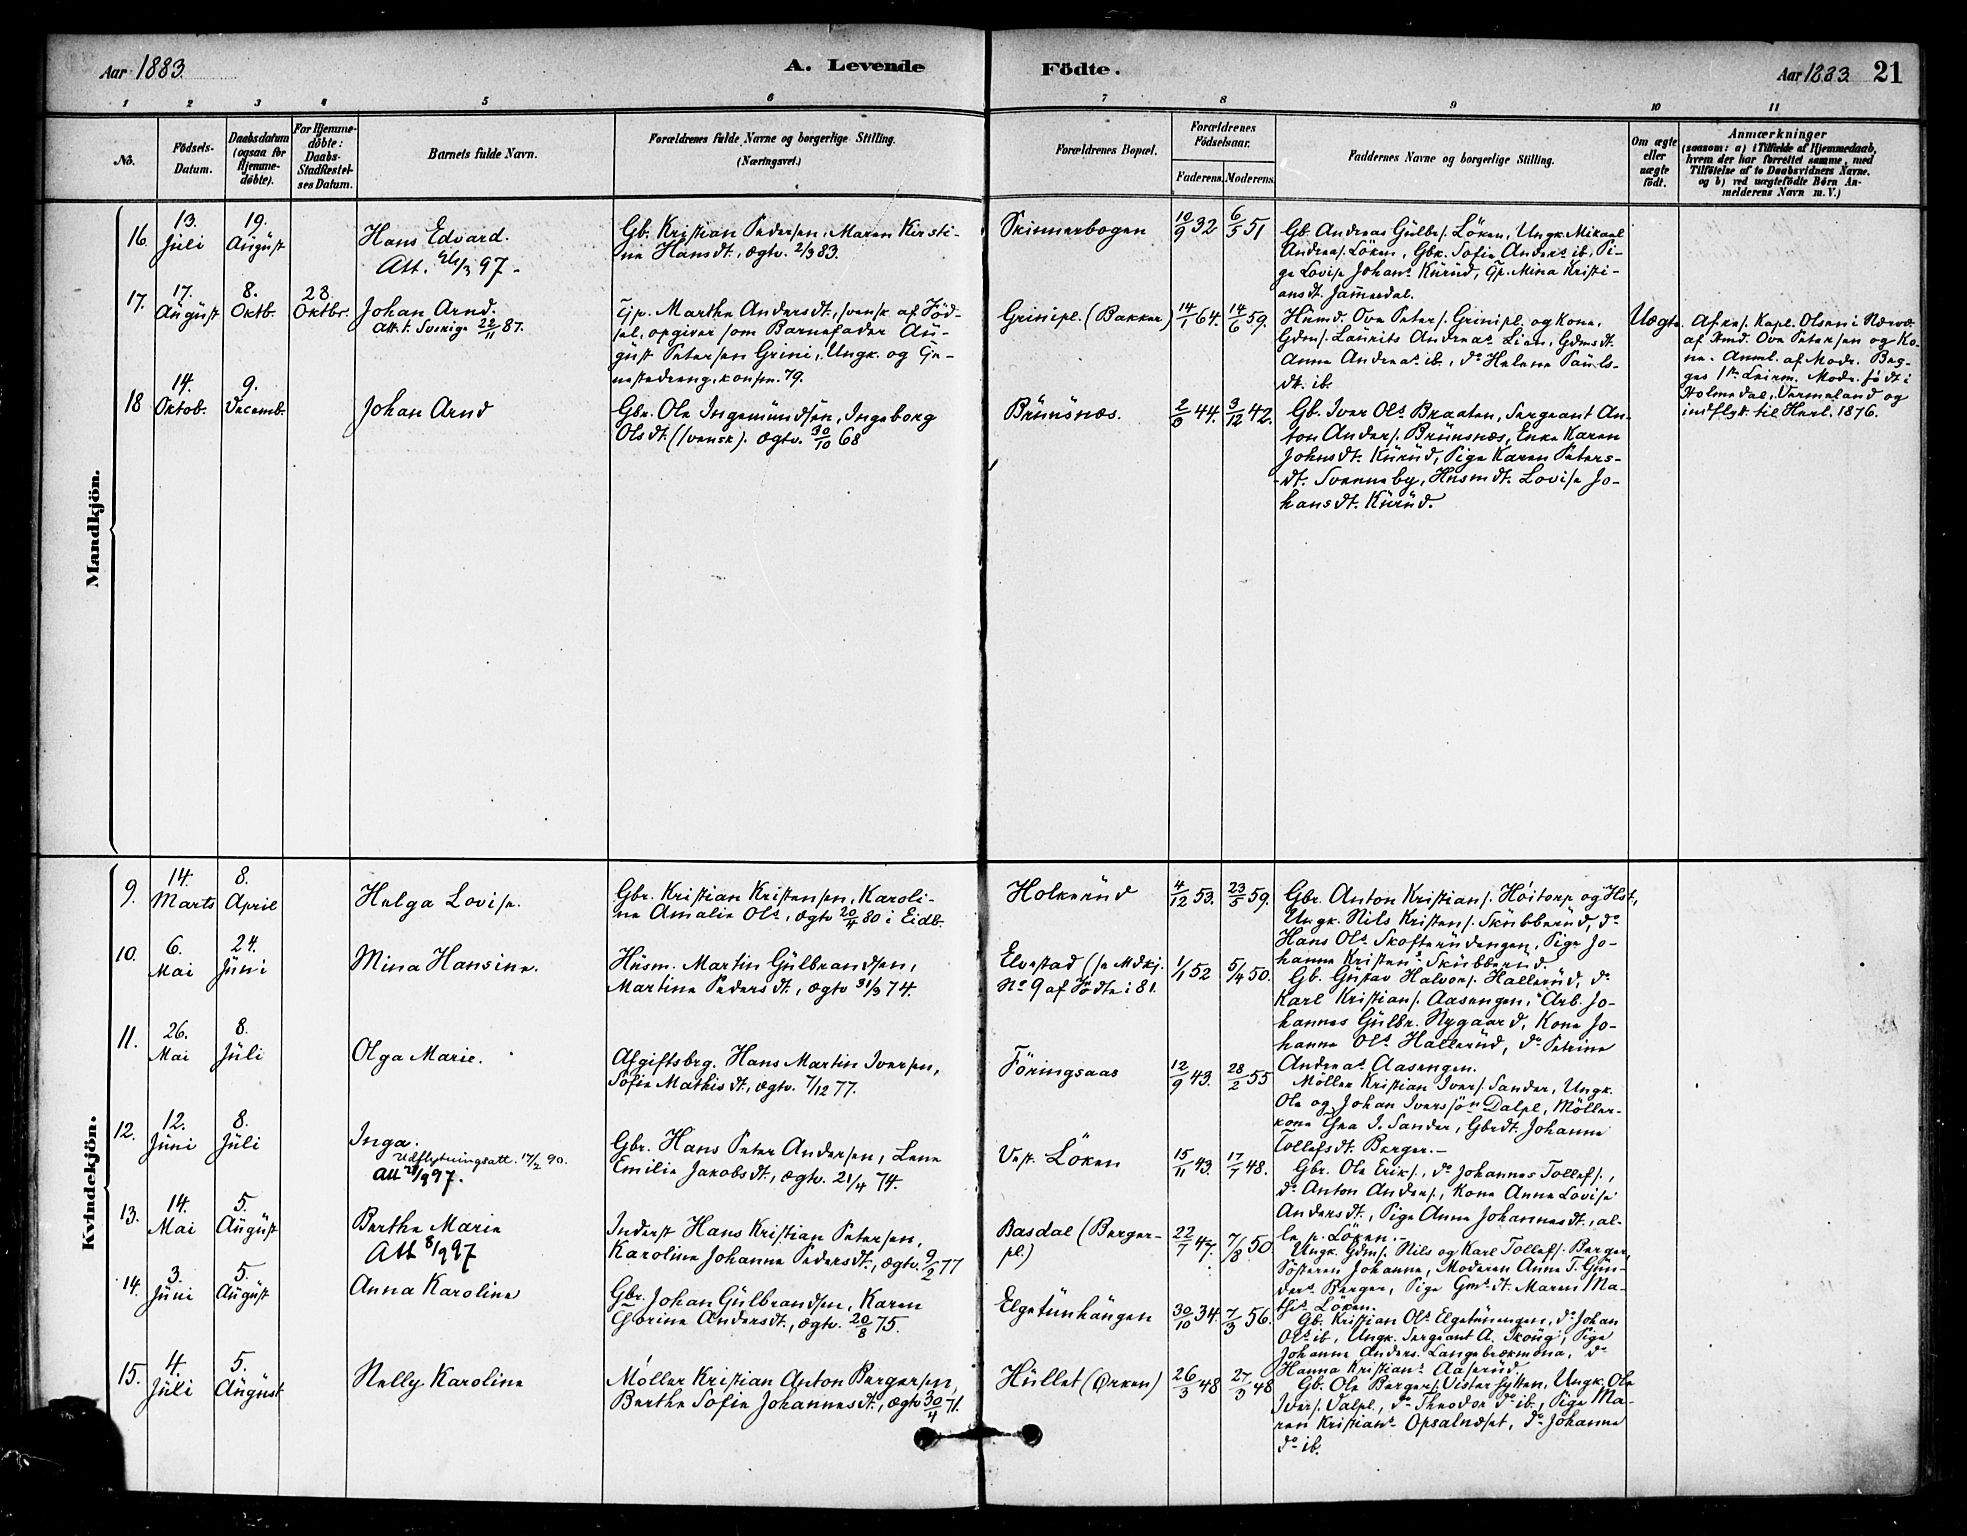 Aar 1883.
A. Levende Födte.
Aar 1883. 21
1 2 3 4 5 6 7 8 9 10 11
No.
Födsels-
Datum.
Daabsdatum
(ogsaa for
Hjemme-
døbte).
For Hjemme-
døbte:
Daabs-
Stadfæstel-
ses Datum.
Barnets fulde Navn.
Forældrenes fulde Navne og borgerlige Stilling.
(Næringsvei.)
Forældrenes Bopæl.
Forældrenes
Födselsaar.
Faderens. Moderens.
Faddernes Navne og borgerlige Stilling.
Om ægte
eller
uægte
födt.
Anmærkninger
(saasom: a) i Tilfælde af Hjemmedaab,
hvem der har forrettet samme, med
Tilföielse af to Daabsvidners Navne.
og b) ved uægtefödte Börn An-
melderens Navn m. V.)
Mandkjön.
16. 13. Juli
19. August
Hans Edvard.
Att. 3 97.
Gb. Kristian Pedersen, Maren Kirsti-
ne Hansdt., ægtv. 2/3 83.
Skinnerbogen
10/9 32
6/5 51
Gb. Andreas Gulbs. Löken, Ungk. Mikael
Andreas. Löken, Gbk. Sofie Anders ib, Pi-
ge Lovise Johans Kurud, Gp. Mina Kristi-
ansdt. Jammerdal.
17. 17. August
8. Oktb.
28. Oktbr.
Johan Arnd.
Att. t. Sverige 22/11 87.
Tjp. Marthe Andersdt., svensk af Föd-
sel, opgiver som Barnefader Au-
gust Petersen Grini, Ungk. og Gje-
nstedreng, konfm. 79.
Grinipl. (Bakken)
14/1 64.
14/6 59.
Husmd. Ove Peters. Grinipl. og Kone,
Gdms. Laurits Andreas. Lien, Gdmsdt.
Anne Andreas. ib., do Helene Pauls-
dt. ib.
Uægte
Af res. Kapl. Olsen i Nærv.
af Hmd. Ove Petersen og Ko-
ne. Anml. af Modr. Beg-
ges 1ste Leierm. Modr. födt i
Holmedal, Vermeland og
indflytt. til Herl. 1876.
18 14. Oktob.
9. Decemb.
Johan Arnd
Gbr. Ole Ingemundsen, Ingeborg
Olsdt. (svensk). ægtv. 30/10 68
Brunsnæs.
2/3 44.
3/12 42.
Gb. Iver Ols. Braaten, Sergeant An-
ton Anders. Brunsnæs, Enke Karen
Johnsdt. Kurud, Pige Karen Peters-
dt. Svenneby, Husmdt. Lovise Jo-
hansdt. Kurud.
Kvindekjön.
9. 14. Marts
8. April
Helga Lovise.
Gbr. Kristian Kristensen, Karoli-
ne Amalie Ols., ægtv 20/4 80 i Eidb.
Holkerud
4/12 53.
23/5 59.
Gbr. Anton Kristians. Höitorp og Hst,
Ungk. Nils Kristens. Skubberud, do
Hans Ols. Skofterudengen, Pige Jo-
hanne Kristens. Skubberud.
10. 6. Mai
24. Juni
Mina Hansine.
Husm. Martin Gulbrandsen,
Martine Pedersdt., ægtv 31/3 74.
Elvestad (se Mdkj.
No 9 af Födte i 81.
1/1 52
5/4 50.
Gb. Gustav Halvors. Hallerud, do
Karl Kristians. Aasengen, Arb. Jo-
hannes Gulbr. Nygaard, Kone Jo-
hanne Ols. Hallerud, do Petrine
Andreas Aasengen.
11. 26. Mai
8. Juli
Olga Marie.
Afgiftsbrg. Hans Martin Iversen,
Sofie Mathisdt., ægtv. 7/12 77.
Föringsaas
12/9 43.
28/2 55
Möller Kristian Ivers. Sander, Ungk.
Ole og Johan Iverssön Dalpl., Möller-
kone Gea I. Sander, Gbrdt. Johanne
Tollefsdt. Berger.
12. 12. Juni
8. Juli
Inga.
Udflytningsatt. 17/2 90.
Att 97.
Gbr. Hans Peter Andersen, Lene
Emilie Jakobsdt., ægtv. 21/4 74.
Vest. Löken
15/11 43.
17/7 48.
Gbr. Ole Eriks., do Johannes Tollefs.,
do Anton Anders., Kone Anne Lovise
Andersdt., Pige Anne Johannesdt., al-
le p. Löken.
13. 14. Mai
5. August
Berthe Marie
Att 8/9 97
Inderst Hans Kristian Petersen,
Karoline Johanne Pedersdt., ægtv. 9/2 77
Basdal (Berger-
pl.)
22/7 47.
7/8 50.
Ungk. Gdms. Nils og Karl Tollefs. Berger,
Sösteren Johanne, Moderen Anne T. Gun-
ders. Berger, Pige Gmsdt. Maren Ma-
this. Löken.
14. 3. Juni
5. August
Anna Karoline
Gbr. Johan Gulbrandsen, Karen
Gorine Andersdt., ægtv. 20/8 75.
Elgetunhaugen
30/10 34.
7/3 56.
Gb. Kristian Ols. Elgetunengen, do Johan
Ols. ib, Ungk. Sergeant A. Skoug, Pige
Johanne Anders. Langebækmona, do
Hanna Kristians. Aaserud
15. 4. Juli
5. August
Nelly Karoline
Möller Kristian Anton Bergersen,
Berthe Sofie Johannesdt., ægtv 30/4 71.
Hullet (Örken)
26/3 48
27/3 48
Gb. Ole Bergers. Vister hytten, Ungk. Ole
Ivers. Dalpl., do Theodor do ib., Pige Ma-
ren Kristians Opsalnæset, do Johanne
do ib.